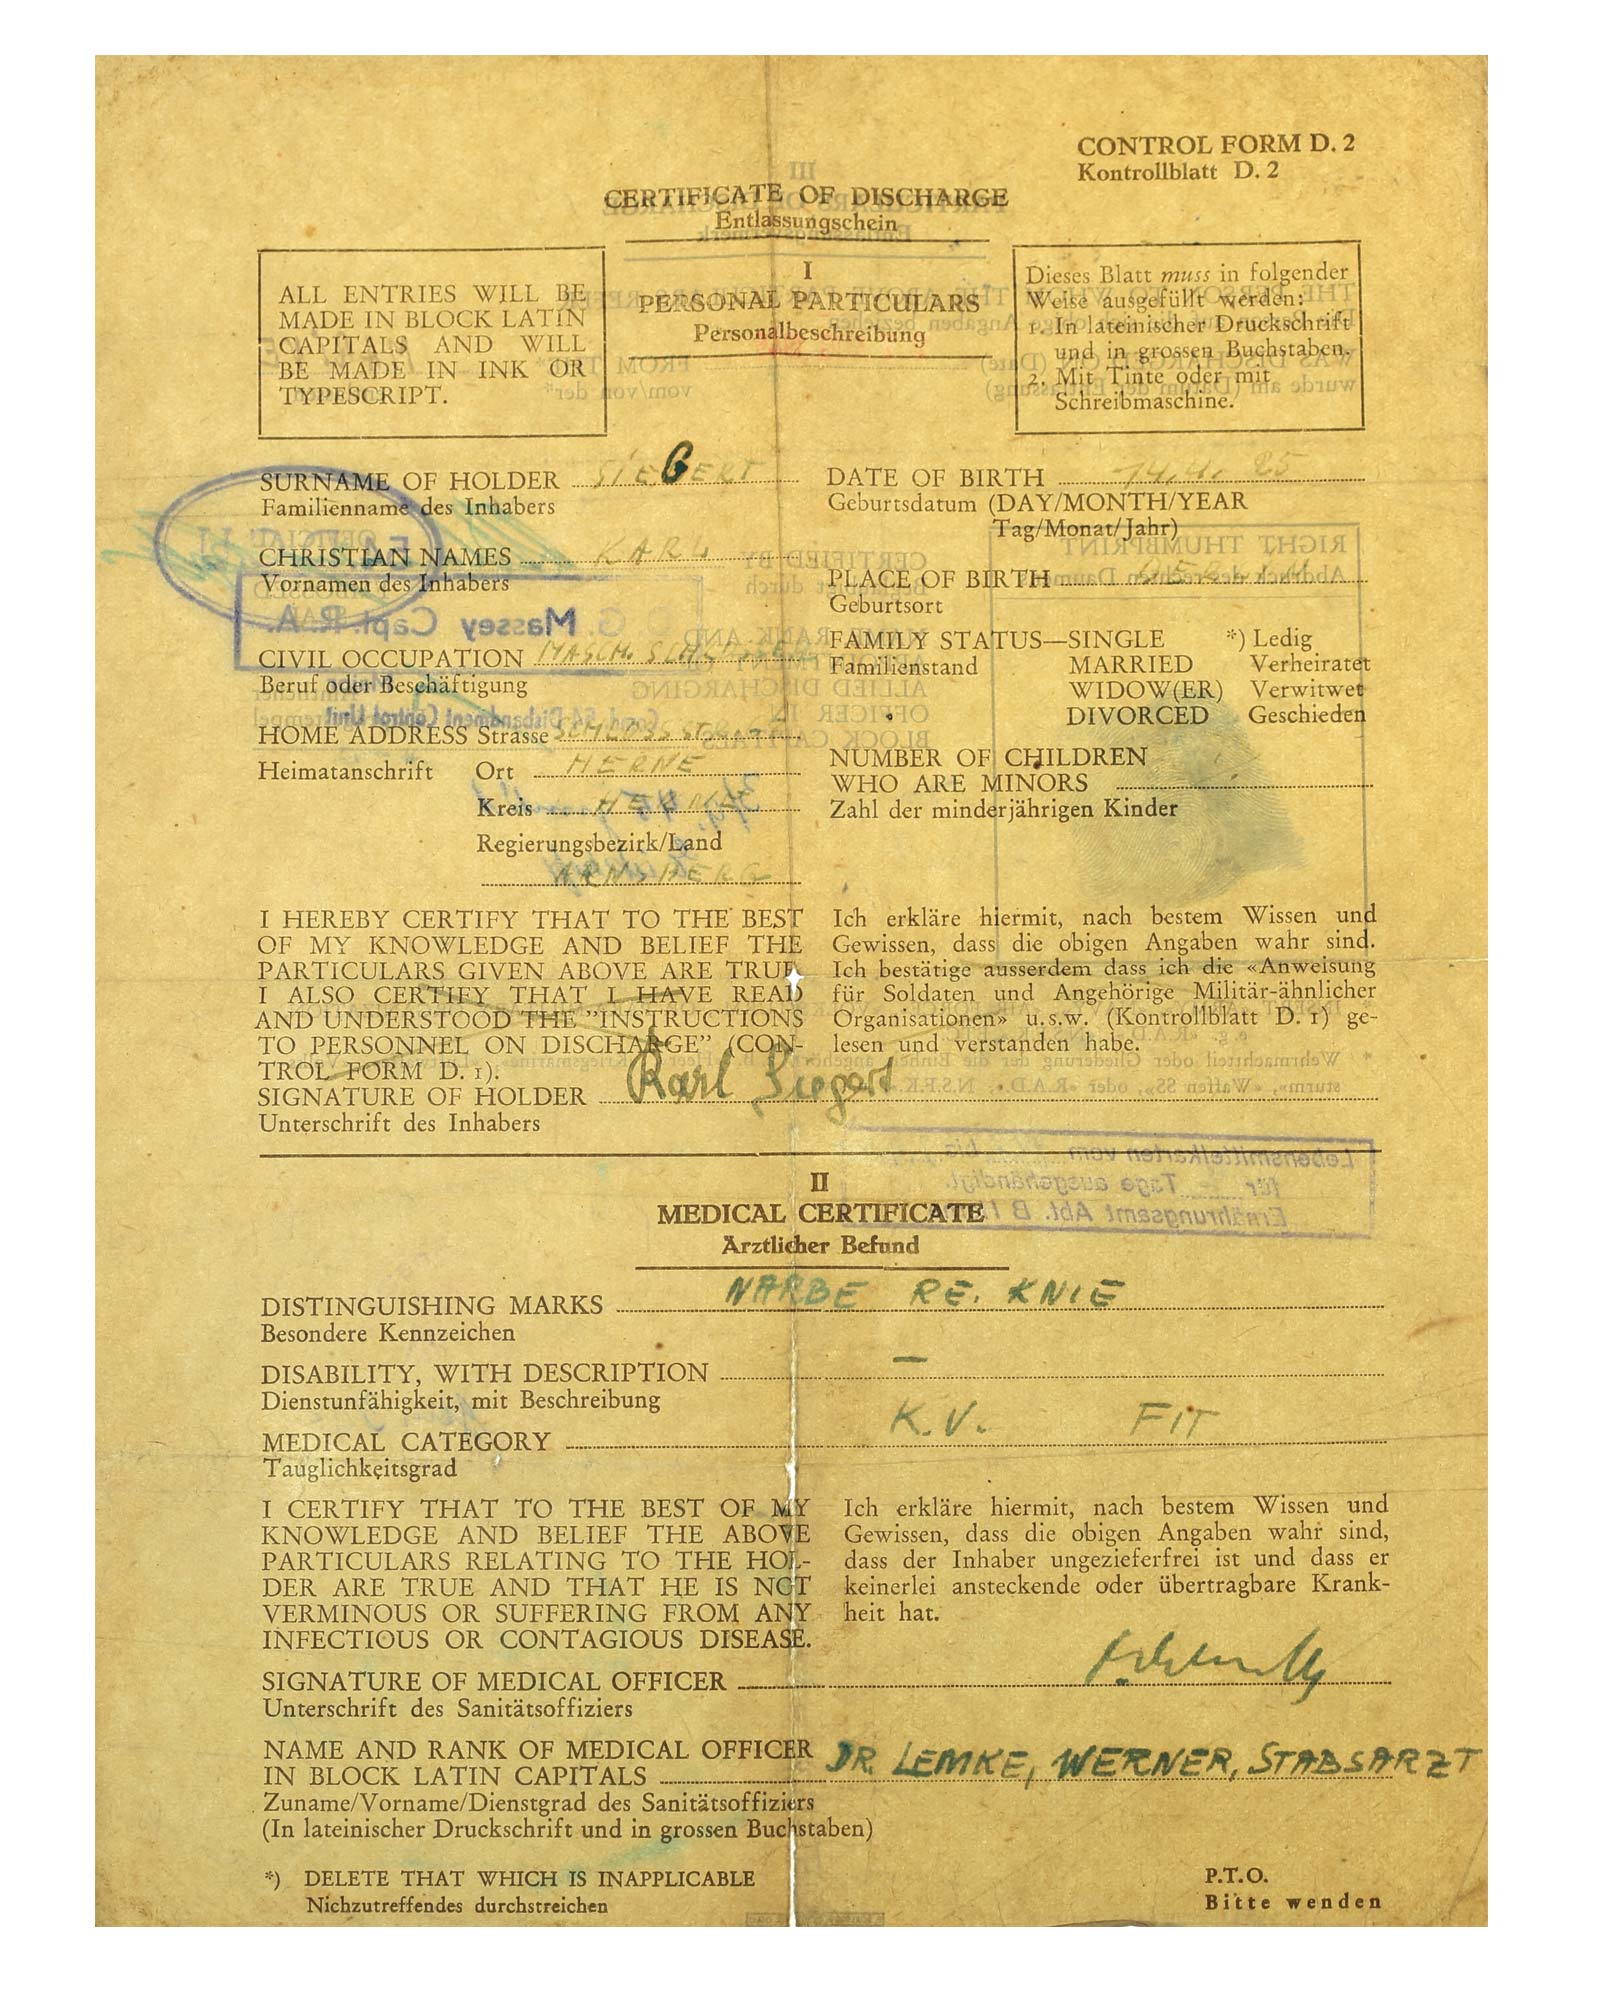 CONTROL FORM D. 2
Kontrollblatt D. 2
CERTIFICATE OF DISCHARGE
Entlassungschein
I
PERSONAL PARTICULARS
Personalbeschreibung
ALL ENTRIES WILL BE
MADE IN BLOCK LATIN
CAPITALS AND WILL
BE MADE IN INK OR
TYPESCRIPT.
Dieses Blatt muss in folgender
Weise ausgefüllt werden:
1. In lateinischer Druckschrift
und in grossen Buchstaben.
2. Mit Tinte oder mit
Schreibmaschine.
SURNAME OF HOLDER SIEGERT
Familienname des Inhabers
CHRISTIAN NAMES KARL
Vornamen des Inhabers
CIVIL OCCUPATION MASCH. SCHLOSSER
Beruf oder Beschäftigung
HOME ADDRESS Strasse SCHLOSSSTR.
Heimatanschrift Ort HERNE
Kreis HERNE
Regierungsbezirk/Land
ARNSBERG
DATE OF BIRTH 25
Geburtsdatum (DAY/MONTH/YEAR
Tag/Monat/Jahr)
PLACE OF BIRTH
Geburtsort
FAMILY STATUS—SINGLE *) Ledig
Familienstand MARRIED Verheiratet
WIDOW(ER) Verwitwet
DIVORCED Geschieden
NUMBER OF CHILDREN
WHO ARE MINORS
Zahl der minderjährigen Kinder
I HEREBY CERTIFY THAT TO THE BEST
OF MY KNOWLEDGE AND BELIEF THE
PARTICULARS GIVEN ABOVE ARE TRUE.
I ALSO CERTIFY THAT I HAVE READ
AND UNDERSTOOD THE "INSTRUCTIONS
TO PERSONNEL ON DISCHARGE" (CON-
TROL FORM D. 1).
Ich erkläre hiermit, nach bestem Wissen und
Gewissen, dass die obigen Angaben wahr sind.
Ich bestätige ausserdem dass ich die «Anweisung
für Soldaten und Angehörige Militär-ähnlicher
Organisationen» u.s.w. (Kontrollblatt D. 1) ge-
lesen und verstanden habe.
SIGNATURE OF HOLDER Karl Siegert
Unterschrift des Inhabers
II
MEDICAL CERTIFICATE
Ärztlicher Befund
DISTINGUISHING MARKS NARBE RE. KNIE
Besondere Kennzeichen
DISABILITY, WITH DESCRIPTION —
Dienstunfähigkeit, mit Beschreibung
MEDICAL CATEGORY K.V. FIT
Tauglichkeitsgrad
I CERTIFY THAT TO THE BEST OF MY
KNOWLEDGE AND BELIEF THE ABOVE
PARTICULARS RELATING TO THE HOL-
DER ARE TRUE AND THAT HE IS NOT
VERMINOUS OR SUFFERING FROM ANY
INFECTIOUS OR CONTAGIOUS DISEASE.
Ich erkläre hiermit, nach bestem Wissen und
Gewissen, dass die obigen Angaben wahr sind,
dass der Inhaber ungezieferfrei ist und dass er
keinerlei ansteckende oder übertragbare Krank-
heit hat.
SIGNATURE OF MEDICAL OFFICER
Unterschrift des Sanitätsoffiziers
NAME AND RANK OF MEDICAL OFFICER
IN BLOCK LATIN CAPITALS DR. LEMKE, WERNER, STABSARZT
Zuname/Vorname/Dienstgrad des Sanitätsoffiziers
(In lateinischer Druckschrift und in grossen Buchstaben)
*) DELETE THAT WHICH IS INAPPLICABLE
Nichzutreffendes durchstreichen
P.T.O.
Bitte wenden